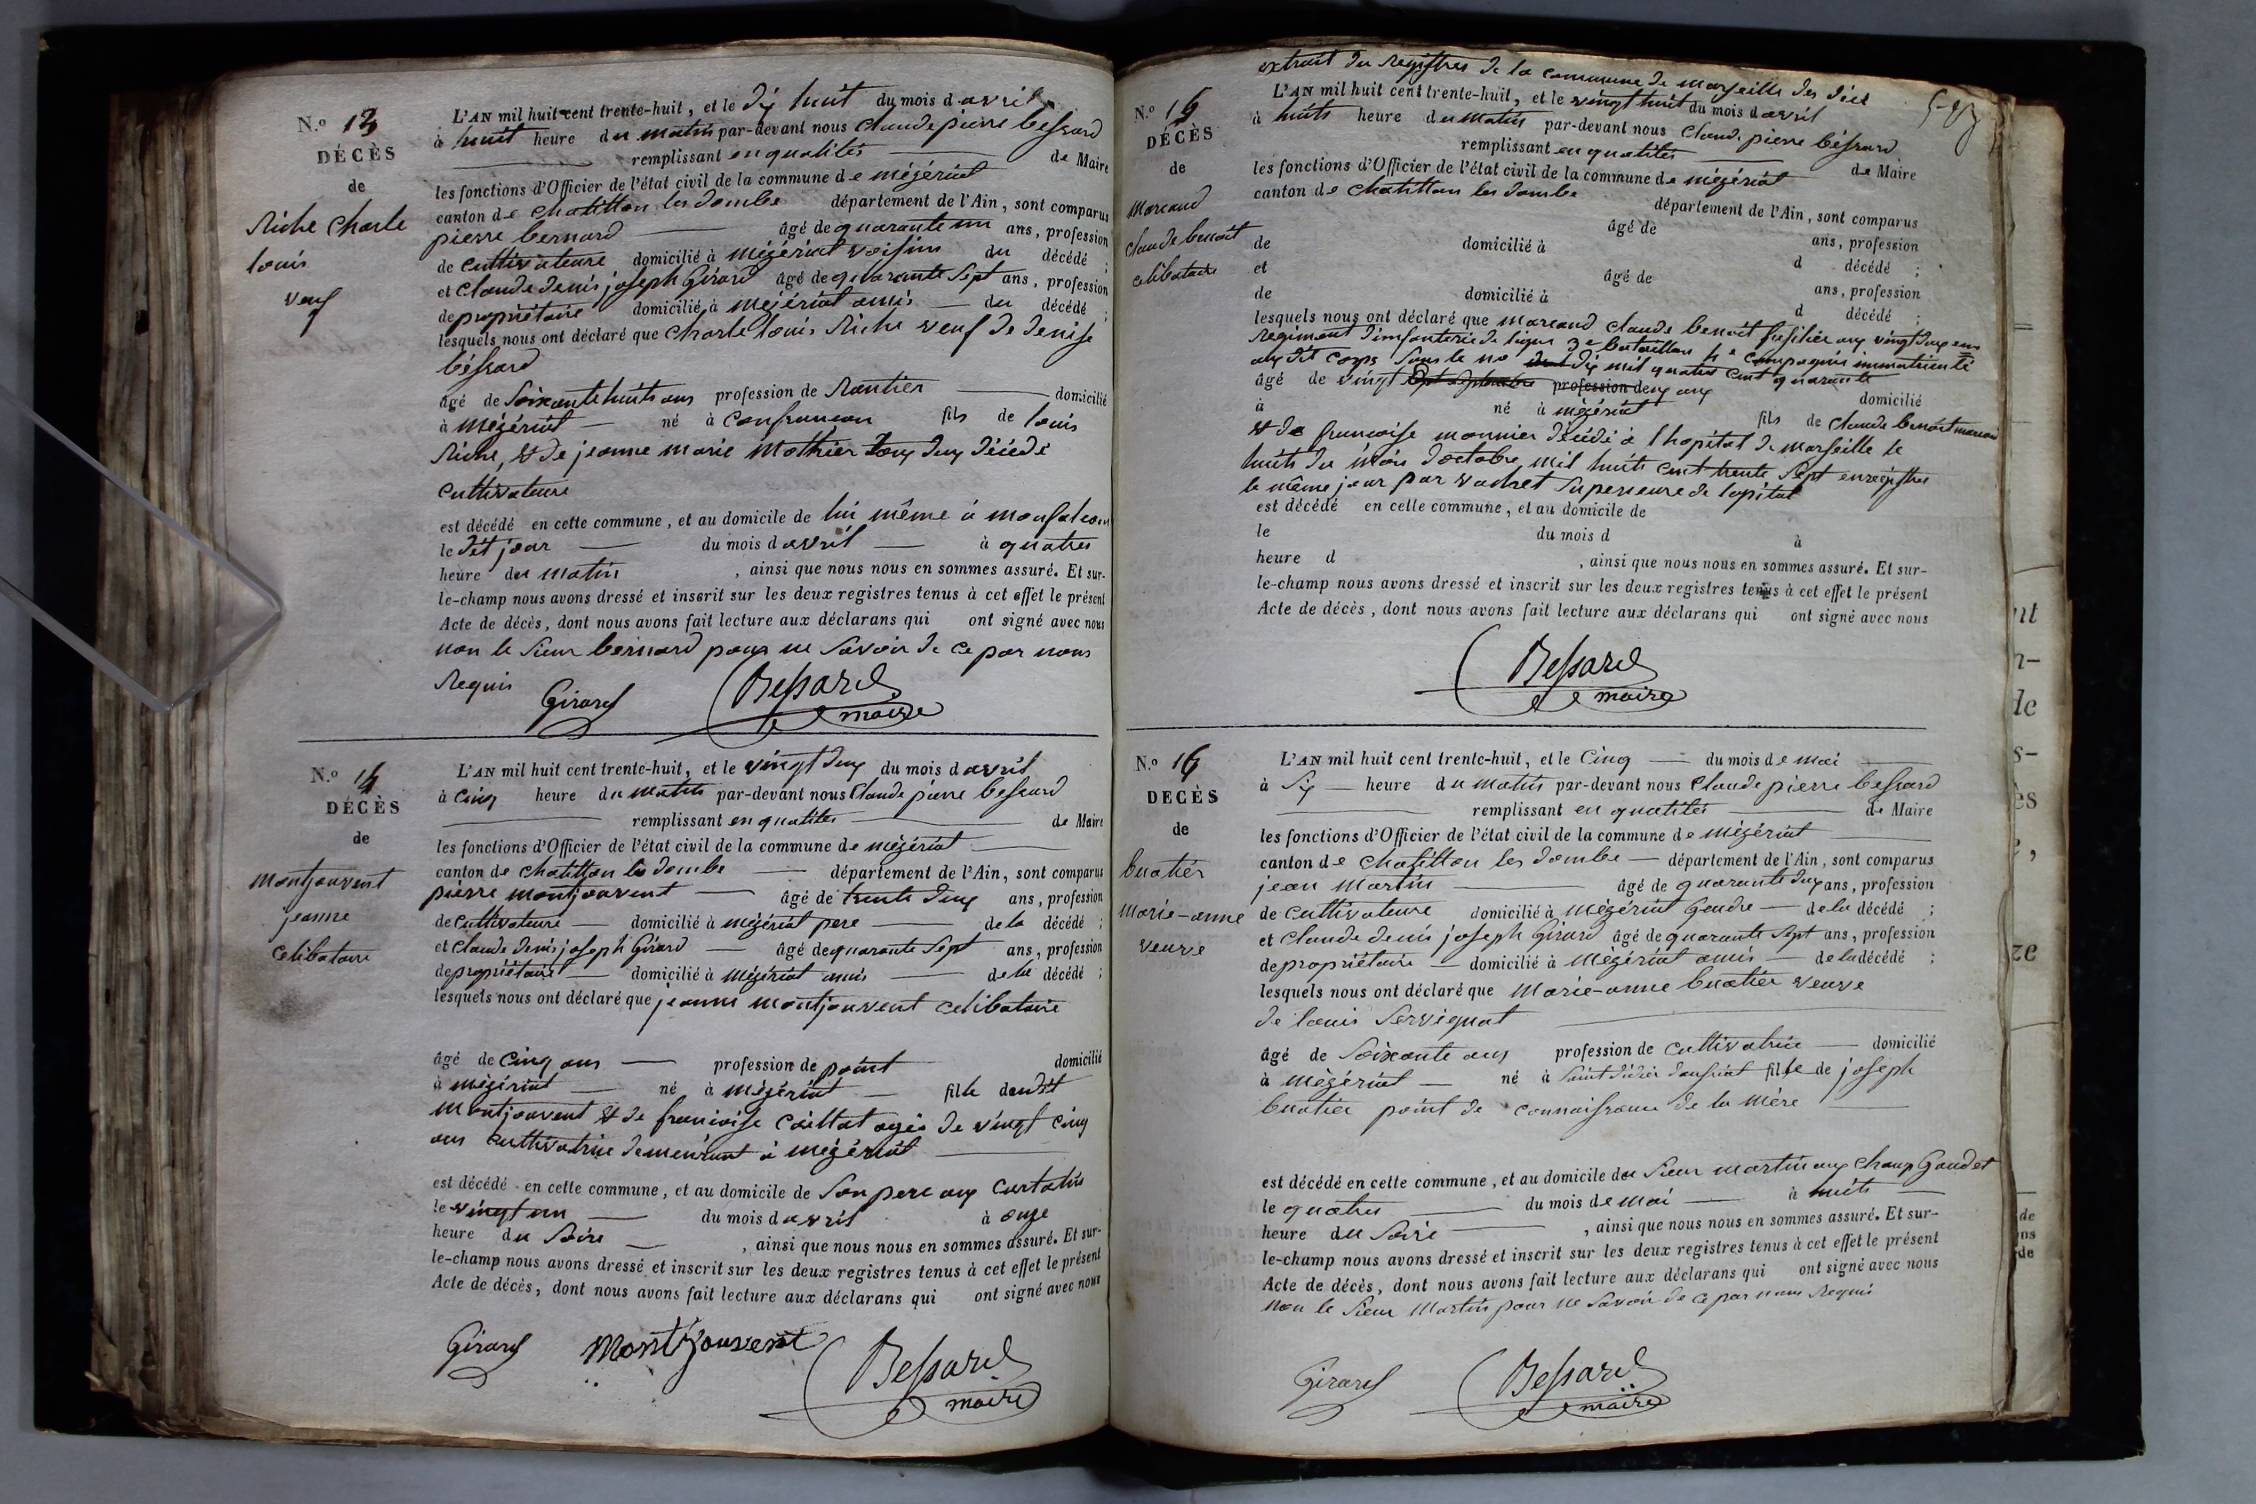 N.º 13
DÉCÈS
de
Riche Charle
louis
veuf
L'AN mil huit cent trente-huit, et le dix huit du mois d avril
à huit heure du matin par-devant nous Claude pierre bessard
remplissant en qualités de Maire
les fonctions d'Officier de l'état civil de la commune de mézériat
canton de chatillon les dombe département de l'Ain, sont comparus
pierre bernard âgé de quarante un ans, profession
de cultivateure domicilié à mézériat voisins du décédé ;
et Claude denis joseph Girard âgé de quarante sept ans, profession
de propriétaire domicilié à mézériat amis du décédé ;
lesquels nous ont déclaré que Charle louis Riche veuf de denise
béssard
âgé de soixante huits ans profession de Rantier domicilié
à mézériat né à confrancon fils de louis
Riche, et de jeanne marie Mathier tous deux décédé
cultivateure
est décédé en cette commune, et au domicile de lui même à
le dit jour du mois d avril à quatres
heure du matin , ainsi que nous nous en sommes assuré. Et sur-
le-champ nous avons dressé et inscrit sur les deux registres tenus à cet effet le présent
Acte de décès, dont nous avons fait lecture aux déclarans qui ont signé avec nous
non le sieur bernard pour ne savoir de ce par nous
Requis
Girard Bessard
maire
N.º 14
DÉCÈS
de
montjouvent
jeanne
celibataire
L'AN mil huit cent trente-huit, et le vingt deux du mois d avril
à cinq heure du matin par-devant nous Claude pierre bessard
remplissant en qualités de Maire
les fonctions d'Officier de l'état civil de la commune de mézériat
canton de chatillon les dombe département de l'Ain, sont comparus
pierre montjouvent âgé de trente deux ans, profession
de cultivateure domicilié à mézériat pere de la décédé ;
et Claude denis joseph Girard âgé de quarante sept ans, profession
de propriétaire domicilié à mézériat amis de la décédé ;
lesquels nous ont déclaré que jeanne montjouvent celibataire
âgé de cinq ans profession de point domicilié
à mézériat né à mézériat fille dudit
montjouvent et de francoise caillat agée de vingt cinq
ans cultivatrice demeurant à mézériat
est décédé en cette commune, et au domicile de son pere aux curtatis
le vingt un du mois d avril à onze
heure du soire , ainsi que nous nous en sommes assuré. Et sur-
le-champ nous avons dressé et inscrit sur les deux registres tenus à cet effet le présent
Acte de décès, dont nous avons fait lecture aux déclarans qui ont signé avec nous
Girard Montjouvent Bessard
maire
extrait du registres de la commune de marseille des décé
N.º 15
DÉCÈS
de
morand
claude benoit
celibataire
L'AN mil huit cent trente-huit, et le vingt huit du mois d avril
à huits heure du matin par-devant nous Claude pierre béssard
remplissant en qualités de Maire
les fonctions d'Officier de l'état civil de la commune de mézériat
canton de chatillon les dombe département de l'Ain, sont comparus
âgé de ans, profession
de domicilié à d décédé ;
et âgé de ans, profession
de domicilié à d décédé ;
lesquels nous ont déclaré que morand claude benoit fusilier aux vingt deux em
Regiment d'imfanterie de ligne 3e bataillon 4e compagnie immatriculé
aux dit corps sous le no dix mil quatre cent quarante
âgé de vingt profession deux ans domicilié
à né à mézériat fils de claude benoit
et de francoise monnier décédé à l'hopital de marseille le
huits du mois d'octobre mil huits cent trente sept enregistrer
le même jour par vachet superieure de l'opital
est décédé en cette commune, et au domicile de
le du mois d à
heure d , ainsi que nous nous en sommes assuré. Et sur-
le-champ nous avons dressé et inscrit sur les deux registres tenus à cet effet le présent
Acte de décès, dont nous avons fait lecture aux déclarans qui ont signé avec nous
Bessard
maire
N.º 16
DECÈS
de
buatier
marie-anne
veuve
L'AN mil huit cent trente-huit, et le cinq du mois de mai
à six heure du matin par-devant nous Claude pierre bessard
remplissant en qualités de Maire
les fonctions d'Officier de l'état civil de la commune de mézériat
canton de chatillon les dombe département de l'Ain, sont comparus
jean martin âgé de quarante deux ans, profession
de cultivateure domicilié à mézériat Gendre de la décédé ;
et Claude denis joseph Girard âgé de quarante sept ans, profession
de propriétaire domicilié à mézériat amis de la décédé ;
lesquels nous ont déclaré que marie-anne buatier veuve
de louis servignat
âgé de soixante ans profession de cultivatrice domicilié
à mézériat né à saint didier daussiat fille de joseph
buatier point de connaissance de la mère
est décédé en cette commune, et au domicile du sieur martin aux champ Gaudet
le quatres du mois de mai à huits
heure du soire , ainsi que nous nous en sommes assuré. Et sur-
le-champ nous avons dressé et inscrit sur les deux registres tenus à cet effet le présent
Acte de décès, dont nous avons fait lecture aux déclarans qui ont signé avec nous
non le sieur martin pour ne savoir de ce par nous Requis
Girard Bessard
maire